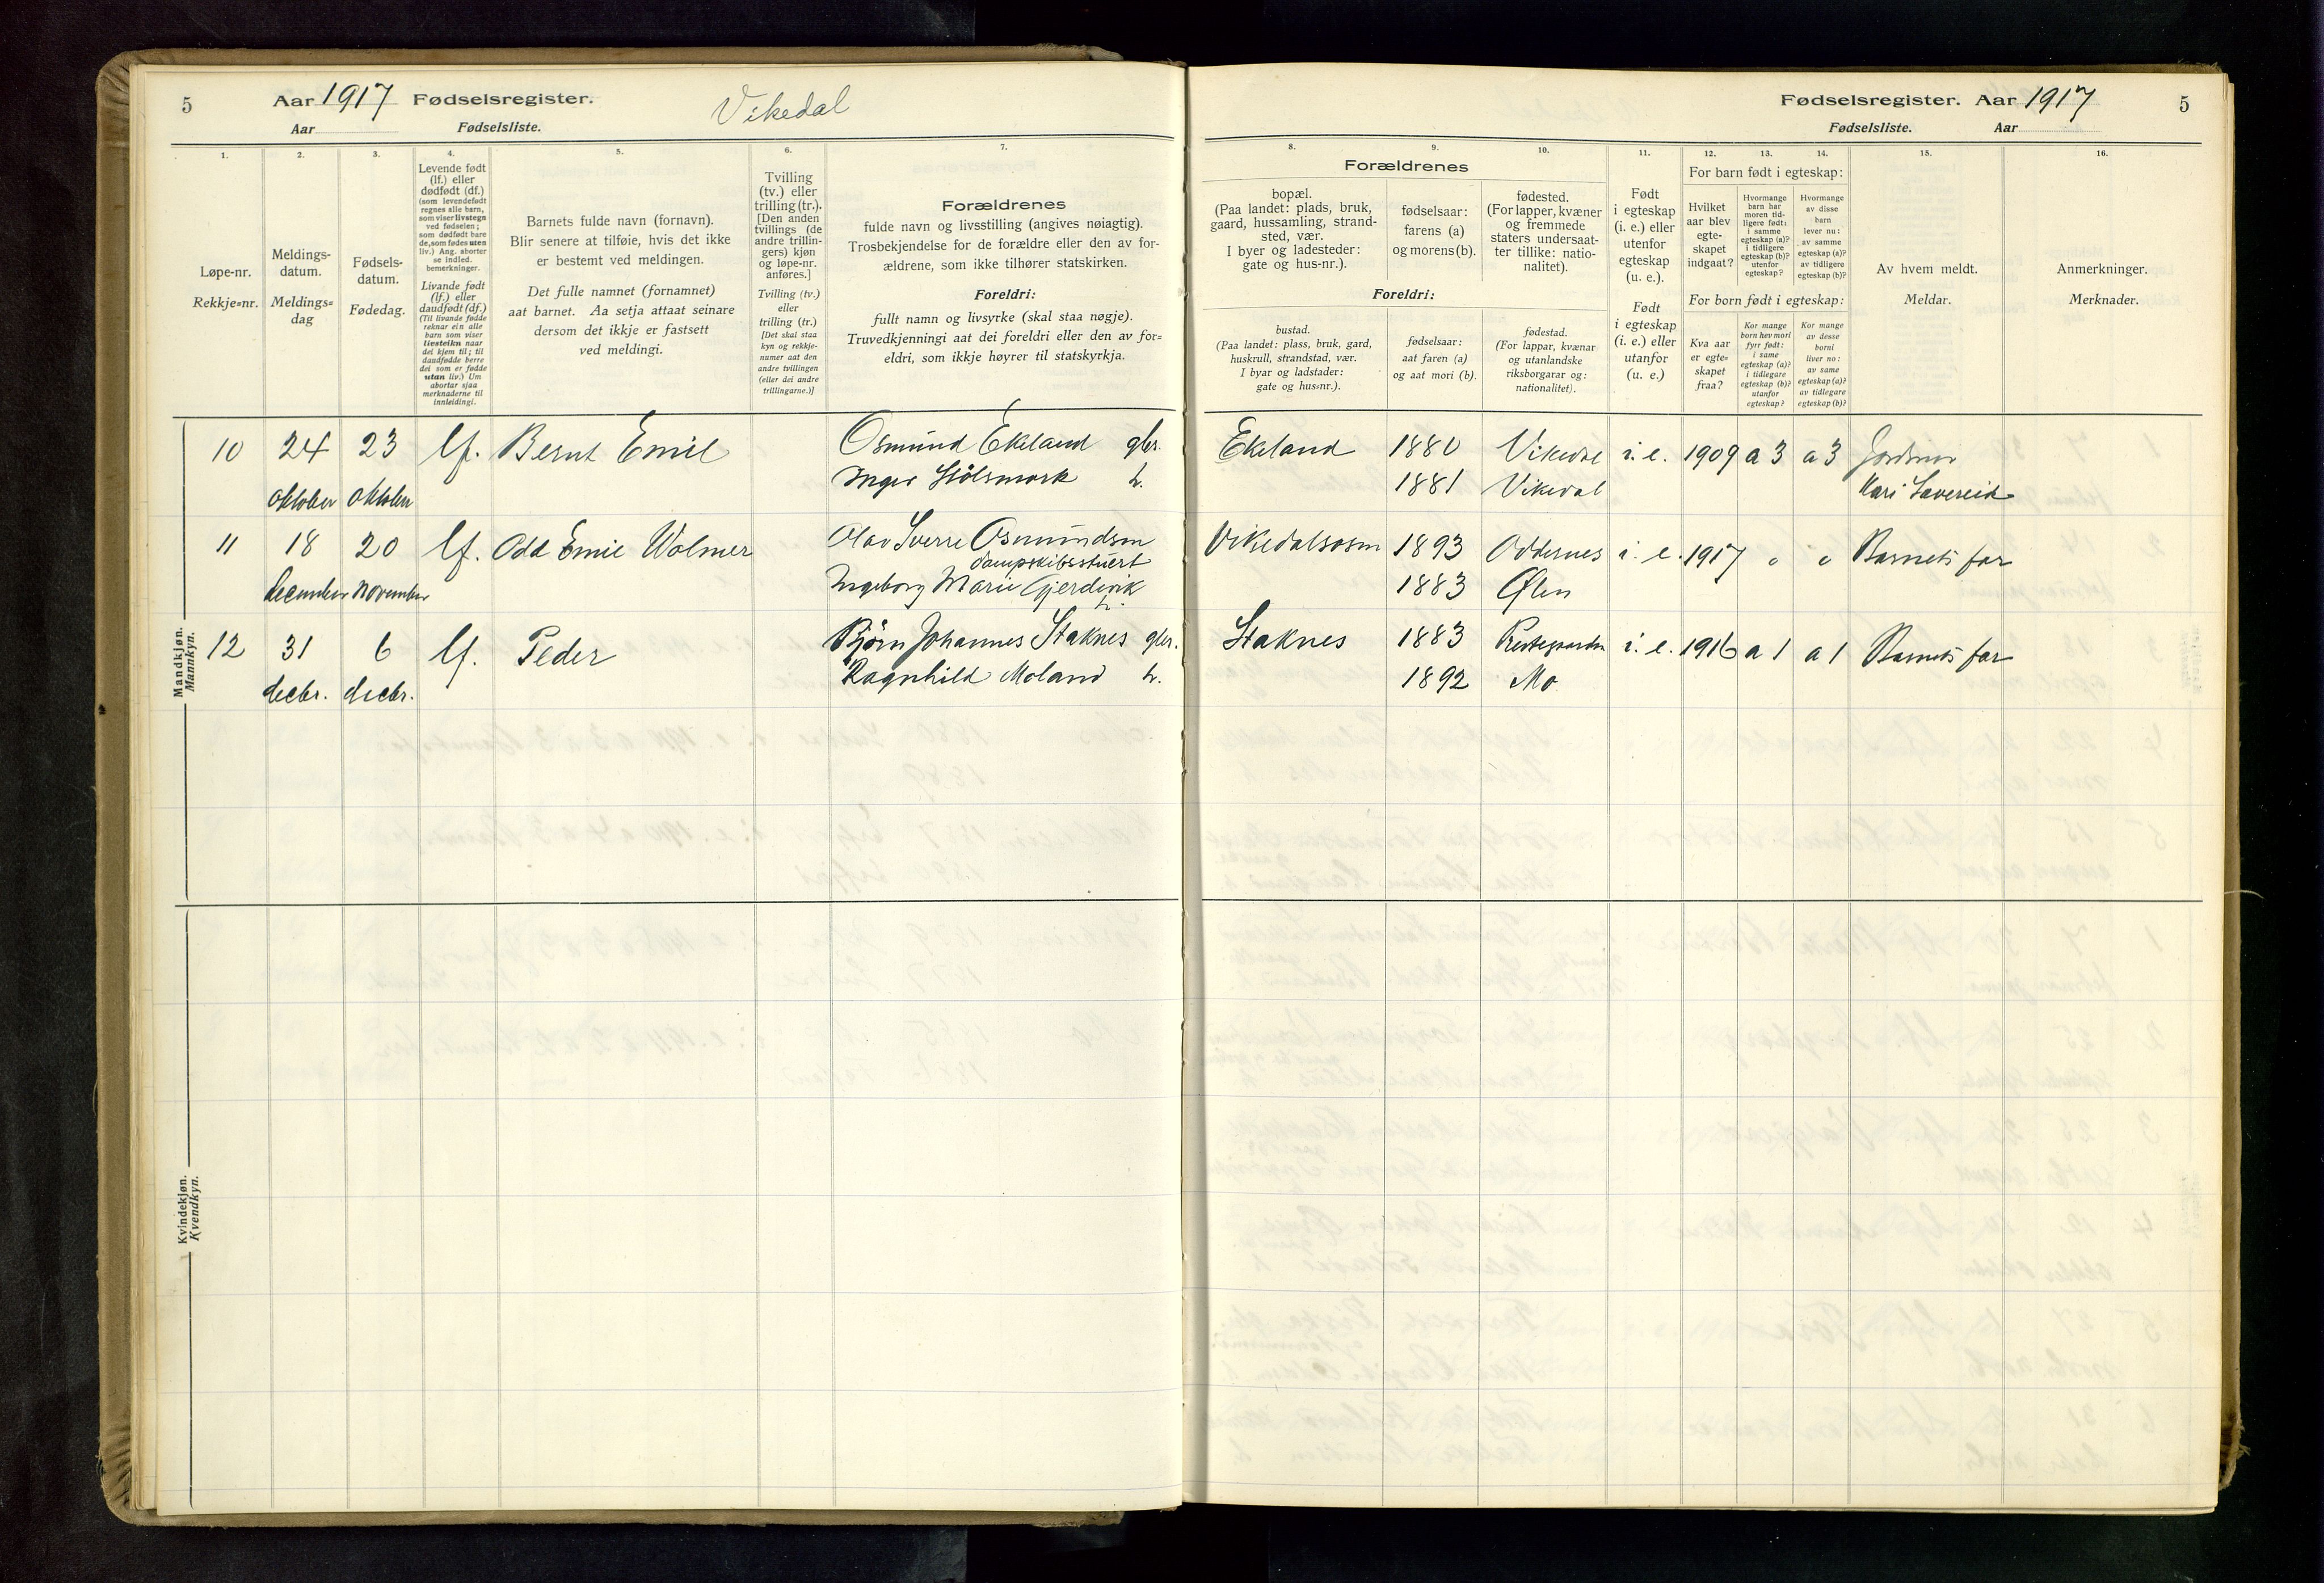 5
Aar 1917 Fødselsregister.
Vikedal
Aar
Fødselsliste.
1.
2.
3.
4.
5.
6.
7.
Løpe-nr.
Rekkje=nr.
Meldings-
datum.
Meldings=
dag
Fødsels-
datum.
Fødedag.
Levende født
(lf.) eller
dødfødt (df.)
(som levendefødt
regnes alle barn,
som viser livstegn
ved fødselen;
som dødfødt bare
de, som fødes uten
liv.) Ang. aborter
se indled.
bemerkninger.
Livande født
(lf.) eller
daudfødt (df.)
(Til livande fødde
reknar ein alle
barn som viser
livsteikn naar
dei kjem til; til
daudfødde berre
dei som er fødde
utan liv.) Um
abortar sjaa
merknaderne til
innleidingi.
Barnets fulde navn (fornavn).
Blir senere at tilføie, hvis det ikke
er bestemt ved meldingen.
Det fulle namnet (fornamnet)
aat barnet. Aa setja attaat seinare
dersom det ikkje er fastsett
ved meldingi.
Tvilling
(tv.) eller
trilling (tr.).
[Den anden
tvillings (de
andre trillin-
gers) kjøn
og løpe-nr.
anføres.]
Tvilling (tv.)
eller
trilling (tr.)
[Det skal staa
kyn og rekkje-
numer aat den
andre tvillingen
(eller dei andre
trillingarne.)]
Forældrenes
fulde navn og livsstilling (angives nøiagtig).
Trosbekjendelse for de forældre eller den av for-
ældrene, som ikke tilhører statskirken.
Foreldri:
fullt namn og livsyrke (skal staa nøgje).
Truvedkjenningi aat dei foreldri eller den av for=
eldri, som ikkje høyrer til statskyrkja.
Mandkjøn.
Mannkyn.
10 24 23 lf. Bernt Emil Osmund Ekeland gbr.
oktober oktober Inger Stølsmark h.
11 18 20 lf. Odd Emil Wolmer Olav Sverre Osmundsen
dampskibsstuert
december november Ingeborg Marie Gjerdevik
h.
12 31 6 lf. Peder Bjørn Johannes Staknes gbr.
decbr. decbr. Ragnhild Moland h.
Kvindekjøn.
Kvendkyn.
Fødselsregister. Aar 1917
5
Fødselsliste.
Aar
8.
9.
10.
11.
12.
13.
14.
15.
16.
Forældrenes
bopæl.
(Paa landet: plads, bruk,
gaard, hussamling, strand-
sted, vær.
I byer og ladesteder:
gate og hus-nr.).
fødselsaar:
farens (a)
og morens (b).
fødested.
(For lapper, kvæner
og fremmede
staters undersaat-
ter tillike: natio-
nalitet).
Foreldri:
bustad.
(Paa landet: plass, bruk, gard,
huskrull, strandstad, vær.
I byar og ladstader:
gate og hus=nr.).
fødselsaar:
aat faren (a)
og aat mori (b).
fødestad.
(For lappar, kvænar
og utanlandske
riksborgarar og:
nationalitet).
Født
i egteskap
(i. e.) eller
utenfor
egteskap
(u. e.).
Født
i egteskap
(i. e.) eller
utanfor
(u. e.)
For barn født i egteskap:
Hvilket
aar blev
egte-
skapet
indgaat?
Hvormange
barn har
moren tid-
ligere født:
i samme
egteskap (a)?
i tidligere
egteskap (b)?
utenfor
egteskap?
Hvormange
av disse
barn
lever nu:
av samme
egteskap (a)?
av tidligere
egteskap (b)?
For born født i egteskap:
Kva aar
er egte=
skapet
fraa?
Kor mange
born hev mori
fyrr født:
i same
egteskap (a)?
i tidlegare
egteskap (b)?
utanfor
egteskap?
Kor mange
av desse
borni
liver no:
av same
egteskap (a)?
av tidlegare
egteskap (b)?
Av hvem meldt.
Meldar.
Anmerkninger.
Merknader.
Ekeland 1880 Vikedal i. e. 1909 a 3 a 3 Jordmor
1881 Vikedal Kari Lavereid
Vikedalsosen 1893 Oddernes i. e. 1917 Barnets far
1883 Ølen
Staknes 1883 i. e. 1916 a 1 a 1 Barnets far
1892 Mo